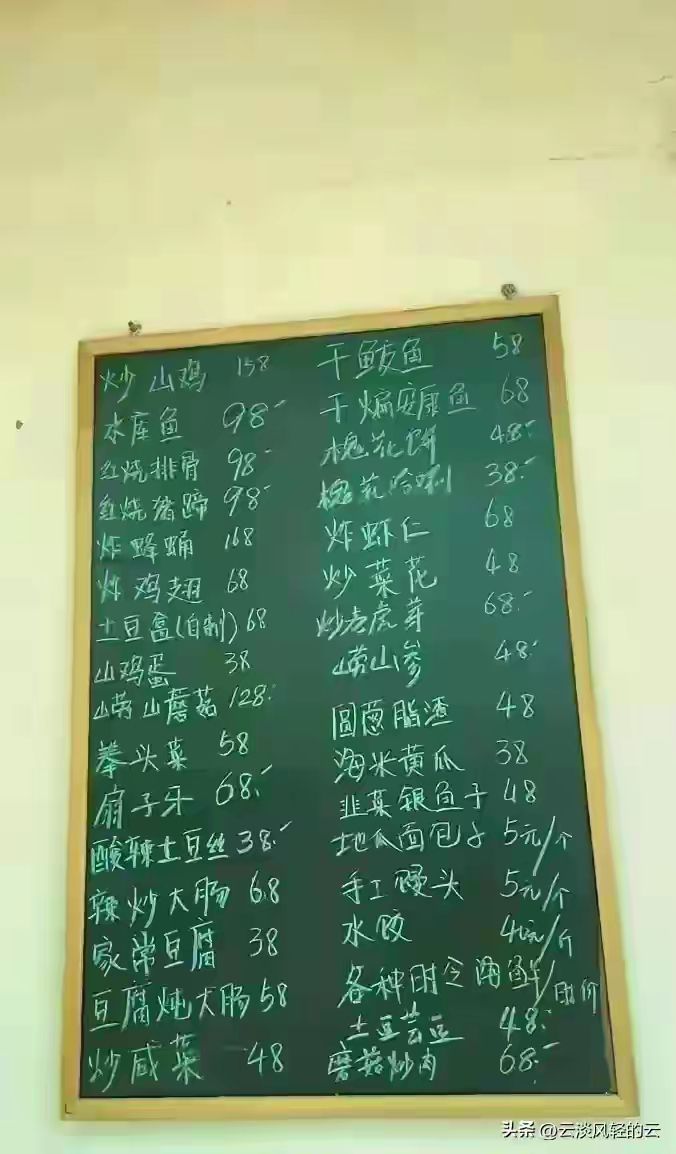 炒山鸡 158
水库鱼 98
红烧排骨 98
红烧猪蹄 98
炸蜂蛹 168
炸鸡翅 68
土豆盒(自制) 68
山鸡蛋 38
崂山蘑菇 128
拳头菜 58
扇子牙 68
酸辣土豆丝 38
辣炒大肠 68
家常豆腐 38
豆腐炖大肠 58
炒咸菜 48
干鲅鱼 58
干煸安康鱼 68
槐花饼 48
槐花哈喇 38
炸虾仁 68
炒菜花 48
炒老虎芽 68
崂山参 48
圆葱脂渣 48
海米黄瓜 38
韭菜银鱼子 48
地瓜面包子 5元/个
手工馒头 5元/个
水饺 40元/斤
各种时令海鲜/时价
土豆芸豆 48
蘑菇炒肉 68
头条 @云淡风轻的云